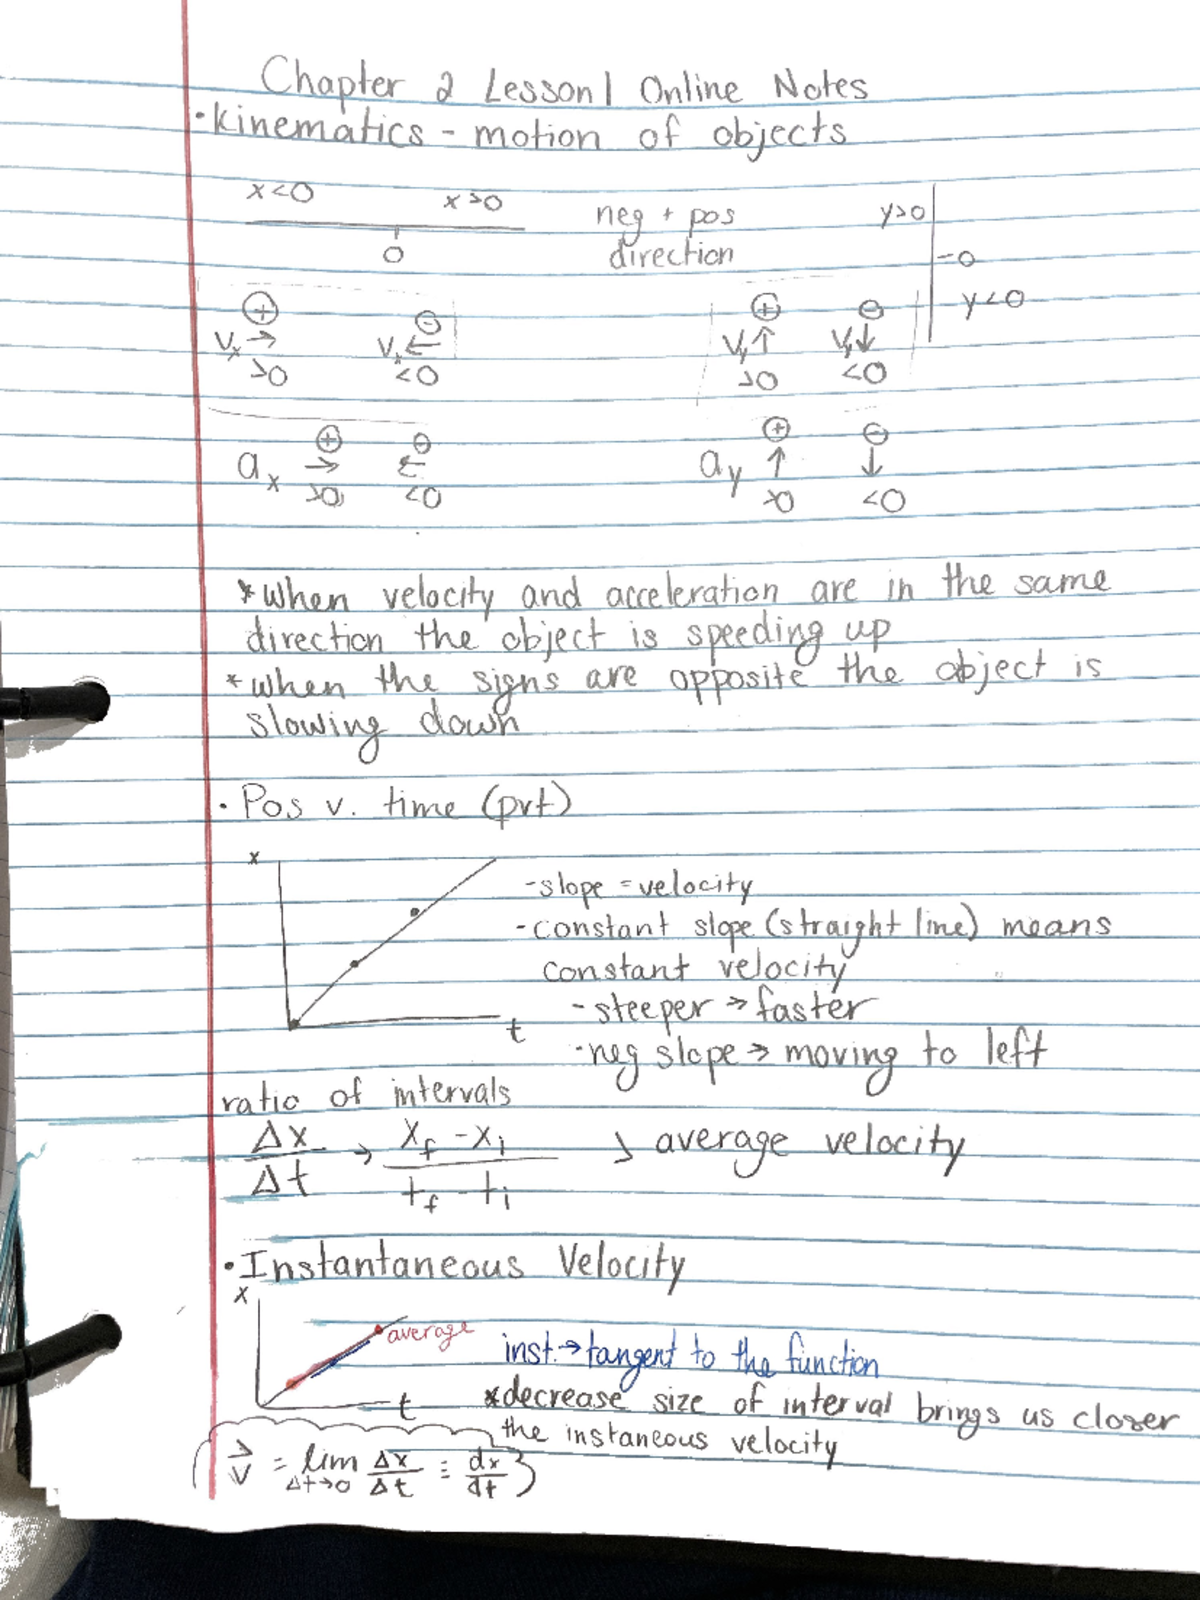 Chapter 2 Lesson 1 Online Notes
·Kinematics - motion of objects
x<0 x>0 neg + pos y>0
0 direction -0
y<0
⊕ ⊖ ⊕ ⊖
Vx → Vx ← Vy ↑ Vy ↓
>0 <0 >0 <0
⊕ ⊖ ⊕ ⊖
ax → ← ay ↑ ↓
>0 <0 >0 <0
*when velocity and acceleration are in the same
direction the object is speeding up
*when the signs are opposite the object is
slowing down
· Pos v. time (pvt)
x
-slope = velocity
-constant slope (straight line) means
constant velocity
- steeper → faster
t
-neg slope → moving to left
ratio of intervals
Δx/Δt → (xf - xi)/(tf - ti) → average velocity
·Instantaneous Velocity
x
average
inst. → tangent to the function
t *decrease size of interval brings us closer
the instaneous velocity
v⃗ = lim Δt→0 Δx/Δt ≡ dx/dt